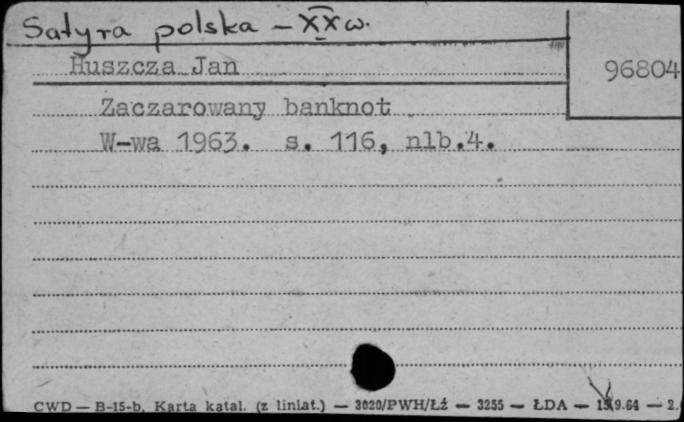 Satyra polska – XX w.
Huszcza Jan
96804
Zaczarowany banknot
W-wa 1963. s. 116, nlb.4.
CWD — B-15-b, Karta katal. (z liniat.) — 3020/PWH/Łź — 3255 — ŁDA — 15.9.64 — 2.